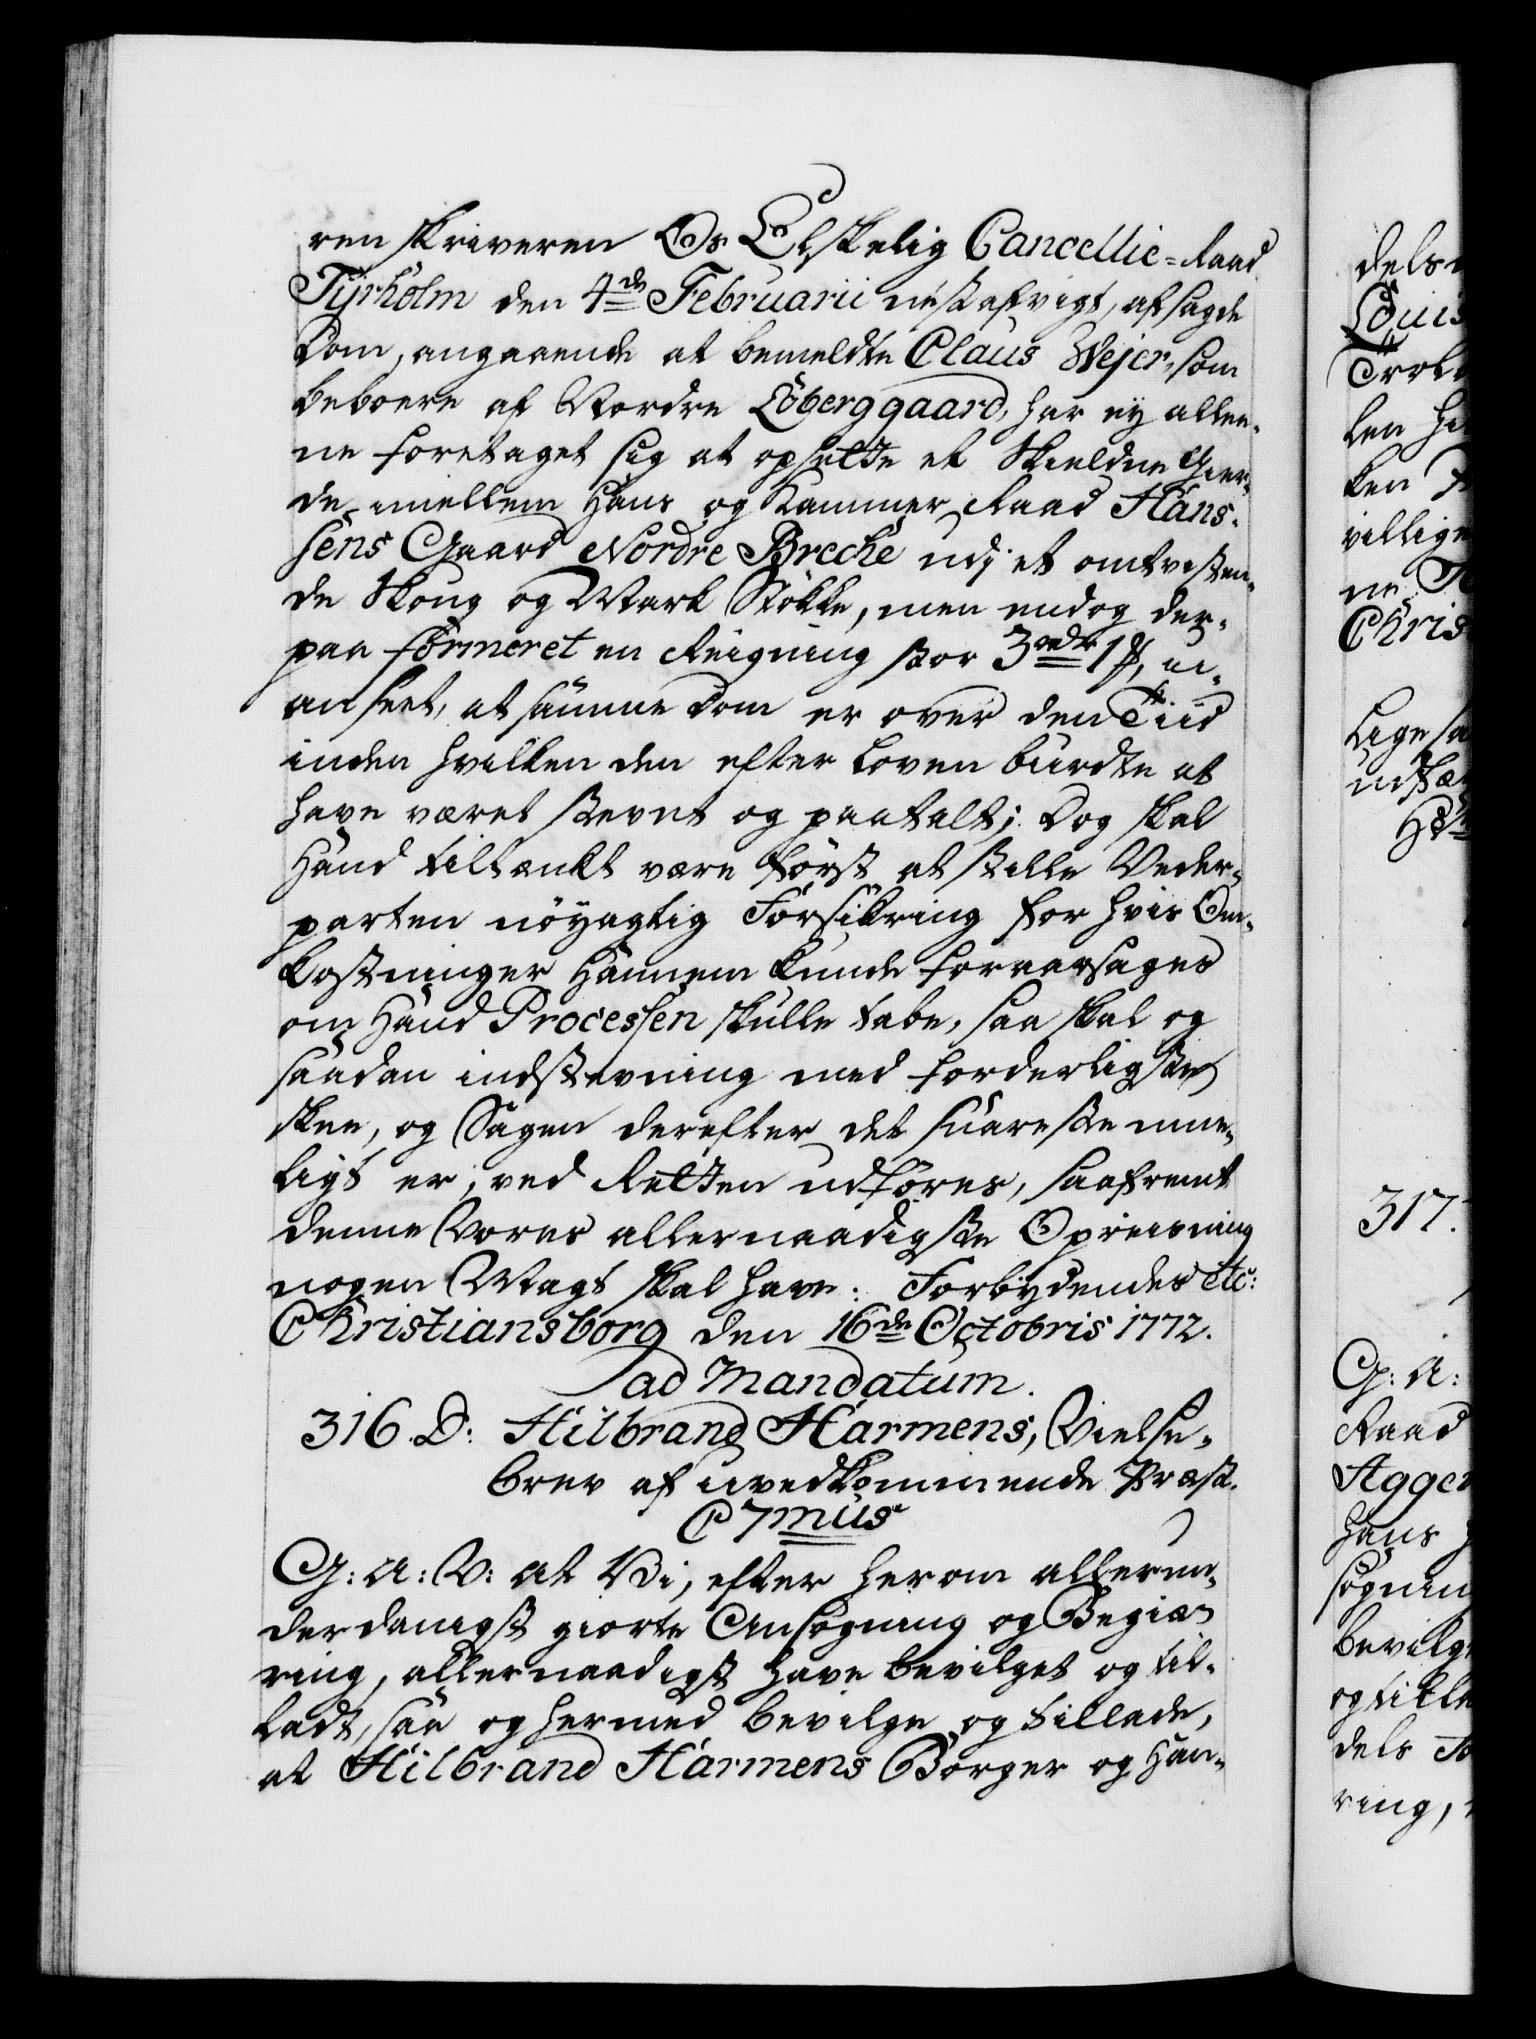 renskriveren Os Elskelig Cancellie-Raad
Tyrholm den 4de Februarii nestafvigt, afsagde
Dom, angaaende at bemeldte Claus Wejer, som
beboere af Nordre Löberggaard, har ey allee-
ne foretaget sig at opsette et Skieldne Gier-
de imellem Hans og Kammer Raad Hans-
sens Gaard Nordre Breche udj et omtvisten-
de Skoug og Mark Stökke, men endog der-
paa formeret en Reigning stor 3 rdr 1 ß, u-
anseet, at samme Dom er over den Tiid
inden hvilken den efter Loven burdte at
have været stevnt og paatalt; Dog skal
Hand tiltænkt være först at stille Veder-
parten nöyagtig Forsikring for hvis Om-
kostninger Hannem kunde foraarsages
om Hand Processen skulle tabe, saa skal og
saadan indstevning med forderligste
skee, og Sagen derefter det snareste mue-
ligt er, ved Retten udföres, saafremt
denne Vores allernaadigste Opreisning
nogen Magt skal have. Forbydendes etc:
Christiansborg den 16de Octobris 1772.
ad Mandatum.
316. D: Hilbrand Harmens, Vielse-
brev af uvedkommende Præst.
C 7mus
G: A: V: at Vi, efter herom allerun-
derdanigst giorte Ansögning og Begiæ-
ring, allernaadigst have bevilget og til-
ladt, saa og hermed bevilge og tillade,
at Hilbrand Harmens Borger og Han-
dels
Louis
len
ken
villige
Chris
Lige sa
317.
G: A:
Raad
Agger
Hans
sögnin
bevilg
og tilla
dels
ring,